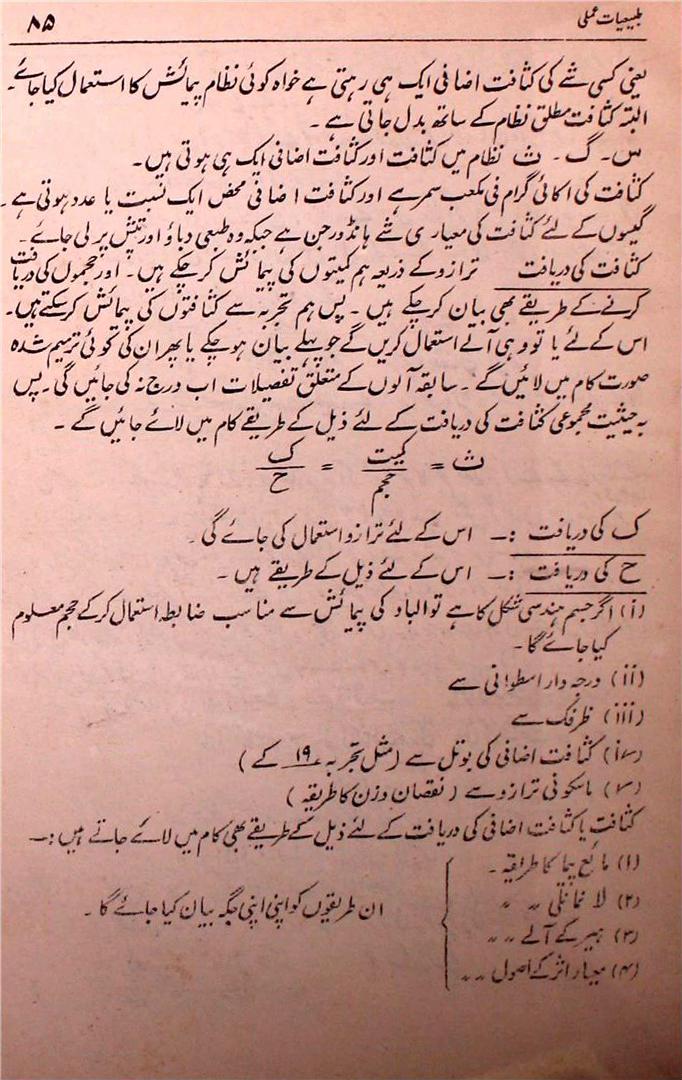 طبیعیات عملی
۸۵
یعنی کسی شے کی کثافت اضافی ایک ہی رہتی ہے خواہ کوئی نظام پیمائش کا استعمال کیا جائے۔
البتہ کثافت مطلق نظام کے ساتھ بدل جاتی ہے ۔
س۔ گ۔ ث نظام میں کثافت اور کثافت اضافی ایک ہی ہوتی ہیں۔
کثافت کی اکائی گرام فی مکعب سمر ہے اور کثافت اضافی محض ایک نسبت یا عدد ہوتی ہے ۔
گیسوں کے لئے کثافت کی معیاری شے ہائڈورجن ہے جبکہ وہ طبعی دباؤ اور تپش پر لی جائے ۔
کثافت کی دریافت ترازو کے ذریعہ ہم کمیتوں کی پیمائش کر چکے ہیں۔ اور حجموں کی دریافت
کرنے کے طریقے بھی بیان کر چکے ہیں ۔ پس ہم تجربہ سے کثافتوں کی پیمائش کر سکتے ہیں۔
اس کے لئے یا تو وہی آلے استعمال کریں گے جو پہلے بیان ہو چکے یا پھر ان کی کوئی ترمیم شدہ
صورت کام میں لائیں گے ۔ سابقہ آلوں کے متعلق تفصیلات اب درج نہ کی جائیں گی ۔ پس
بہ حیثیت مجموعی کثافت کی دریافت کے لئے ذیل کے طریقے کام میں لائے جائیں گے ۔
ث = کمیت / حجم = ک / ح
ک کی دریافت :۔ اس کے لئے ترازو استعمال کی جائے گی ۔
ح کی دریافت :۔ اس کے لئے ذیل کے طریقے ہیں ۔
(i) اگر جسم ہندسی شکل کا ہے تو ابعاد کی پیمائش سے مناسب ضابطہ استعمال کر کے حجم معلوم
کیا جائے گا ۔
(ii) درجہ دار اسطوانی سے
(iii) ظرفک سے
(iv) کثافت اضافی کی بوتل سے (مثل تجربہ ۱۹ کے )
(v) ماسکونی ترازو سے ( نقصان وزن کا طریقہ )
کثافت یا کثافت اضافی کی دریافت کے لئے ذیل کے طریقے بھی کام میں لائے جاتے ہیں :۔
(۱) مائع پیما کا طریقہ ۔
(۲) لا نمانلی ״ ״
(۳) ہیر کے آلے ״ ״
ان طریقوں کو اپنی اپنی جگہ بیان کیا جائے گا ۔
(۴) اصول ״ ״